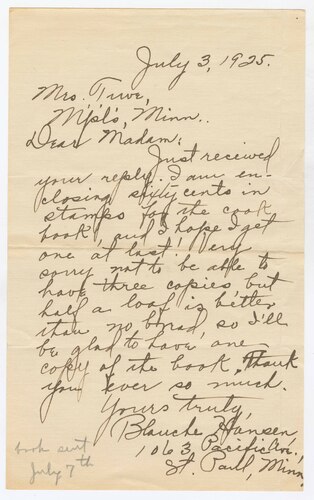 July 3, 1925.
Mrs. Tuve,
M'pl's, Minn..
Dear Madam:
Just received
your reply. I am en-
closing sixty cents in
stamps for the cook
book and I hope I get
one at last! Very
sorry not to be able to
have three copies but
half a loaf is better
than no bread, so I'll
be glad to have one
copy of the book. Thank
you ever so much.
Yours truly,
Blanche Hansen,
1063, Pacific Av.,
St. Paul, Minn.
book sent
July 7th